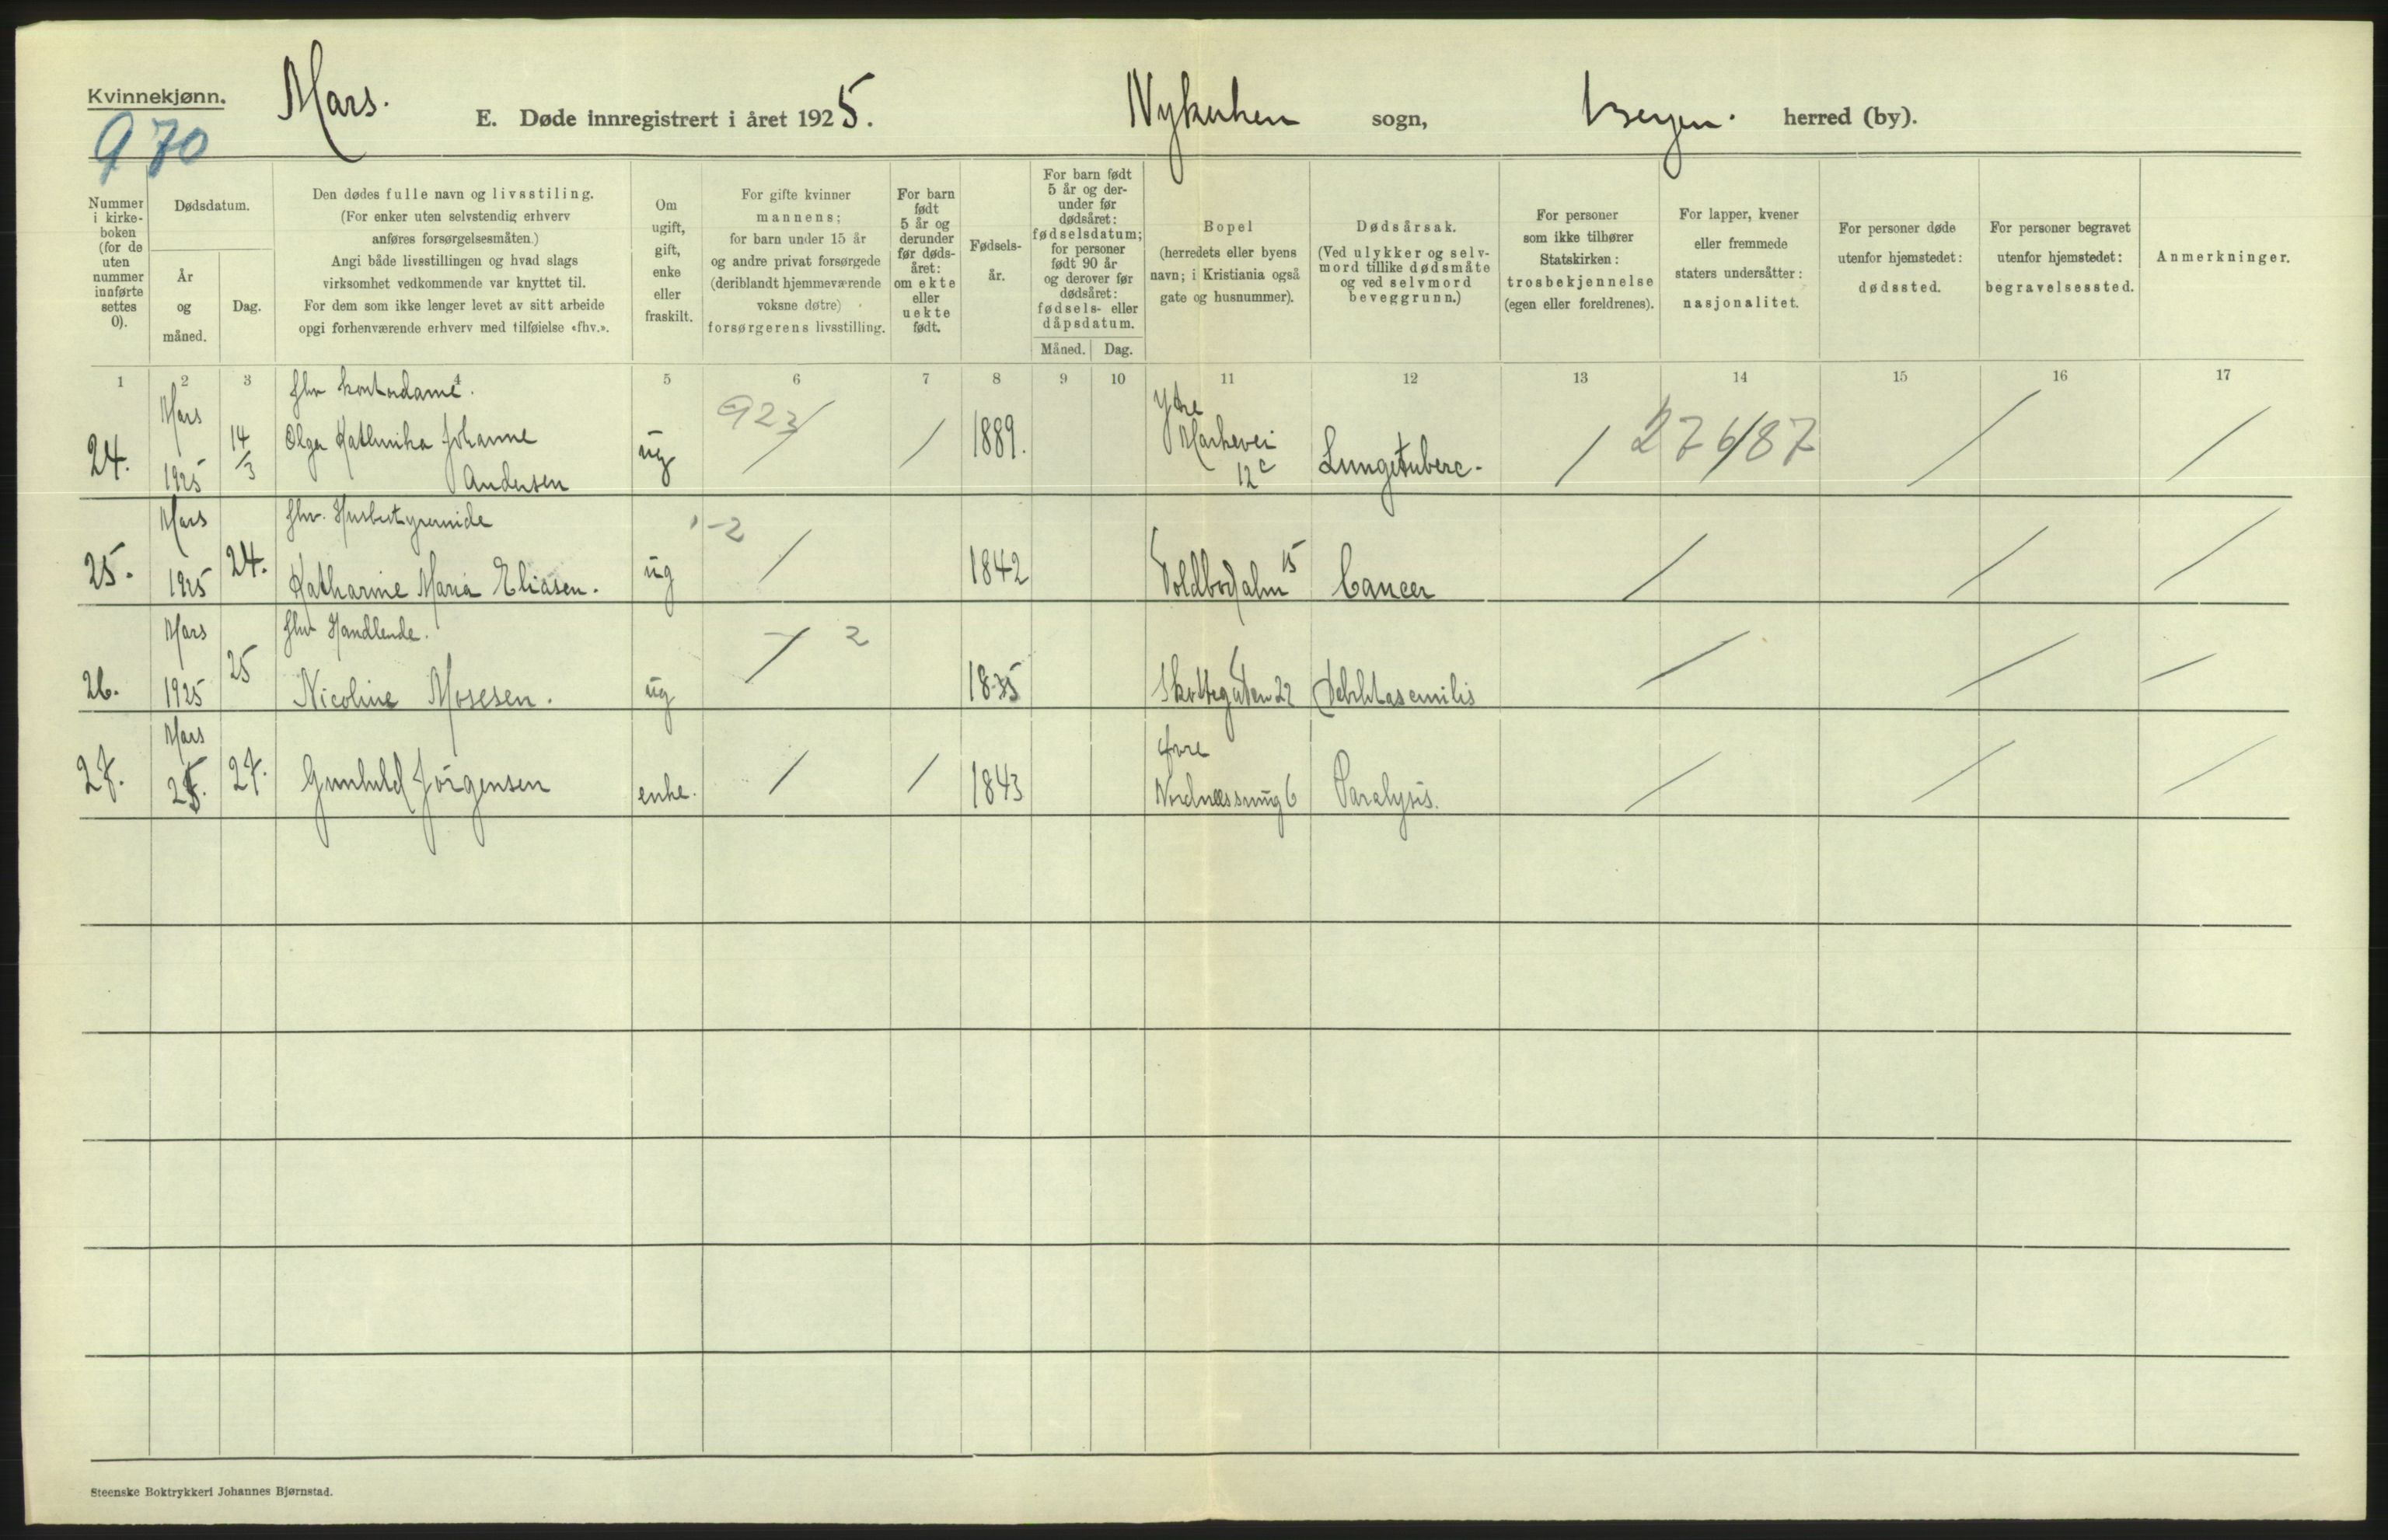 Kvinnekjønn.
Mars.
970
E. Døde innregistrert i året 1925.
Nykirken sogn,
Bergen. herred (by).
Nummer i kirke-boken (for de uten nummer innførte settes 0).
Dødsdatum.
År og måned.
Dag.
Den dødes fulle navn og livsstilling.
(For enker uten selvstendig erhverv
anføres forsørgelsesmåten.)
Angi både livsstillingen og hvad slags
virksomhet vedkommende var knyttet til.
For dem som ikke lenger levet av sitt arbeide
opgi forhenværende erhverv med tilføielse «fhv.».
Om
ugift,
gift,
enke
eller
fraskilt.
For gifte kvinner
mannens;
for barn under 15 år
og andre privat forsørgede
(deriblandt hjemmeværende
voksne døtre)
forsørgerens livsstilling.
For barn
født
5 år og
derunder
før døds-
året:
om ekte
eller
uekte
født.
Fødsels-
år.
For barn født
5 år og der-
under før
dødsåret:
fødselsdatum;
for personer
født 90 år
og derover før
dødsåret:
fødsels- eller
dåpsdatum.
Måned. Dag.
Bopel
(herredets eller byens
navn; i Kristiania også
gate og husnummer).
Dødsårsak.
(Ved ulykker og selv-
mord tillike dødsmåte
og ved selvmord
beveggrunn.)
For personer
som ikke tilhører
Statskirken:
trosbekjennelse
(egen eller foreldrenes).
For lapper, kvener
eller fremmede
staters undersåtter:
nasjonalitet.
For personer døde
utenfor hjemstedet:
dødssted.
For personer begravet
utenfor hjemstedet:
begravelsessted.
Anmerkninger.
1 2 3 4 5 6 7 8 9 10 11 12 13 14 15 16 17
fhv kontordame.
24. Mars 1925 14/3 Olga Kathinka Johanne
Andersen ug 923 / / 1889. Ytre
Markevei
12c Lungetuberc. / 276/87 / /
fhv. Husbestyrerinde
25. Mars 1925 24. Katharine Maria Eliasen. ug -2 / 1842 15 Cancer / / /
fhv Handlende.
26. Mars 1925 25 Nicoline Mosesen. ug / 2 1835 Skottegaten 22 / / /
27. Mars 25. 27. Gunhild Jörgensen enke. / / 1843 Øvre
Nordnessmug 6 Paralysis. / / /
Steenske Boktrykkeri Johannes Bjørnstad.